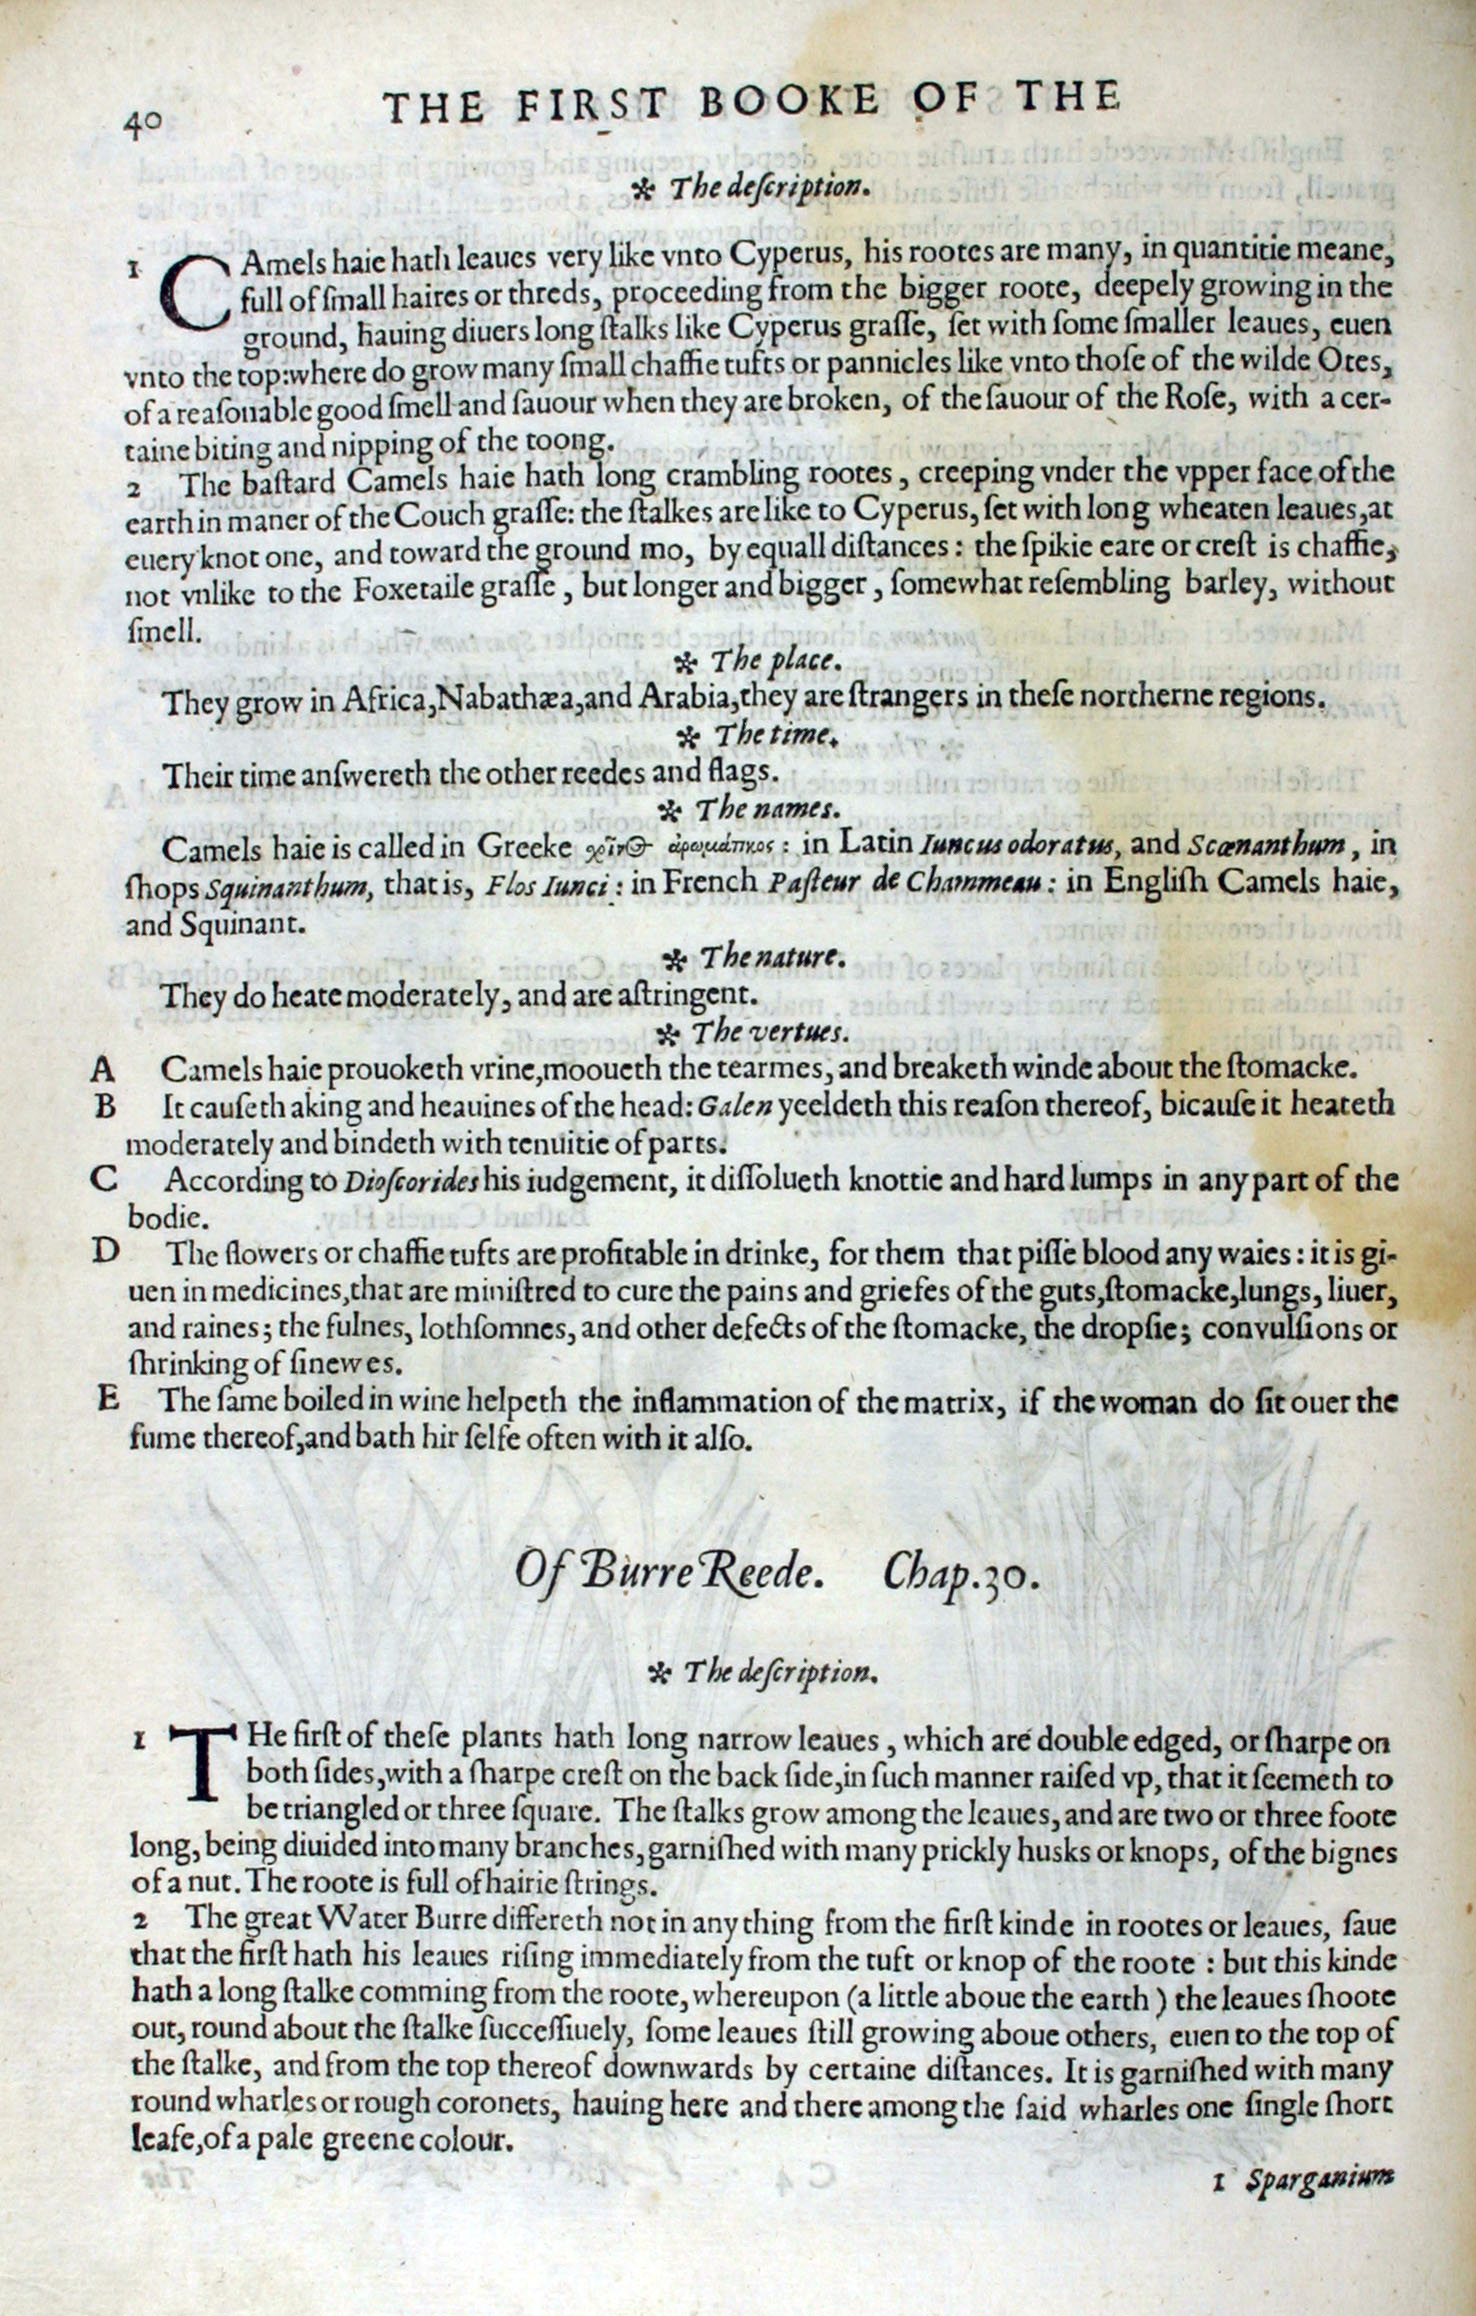 40
THE FIRST BOOKE OF THE
* The deſcription.
1 CAmels haie hath leaues very like vnto Cyperus, his rootes are many, in quantitie meane,
full of ſmall haires or threds, proceeding from the bigger roote, deepely growing in the
ground, hauing diuers long ſtalks like Cyperus graſſe, ſet with ſome ſmaller leaues, euen
vnto the top: where do grow many ſmall chaffie tufts or pannicles like vnto thoſe of the wilde Otes,
of a reaſonable good ſmell and ſauour when they are broken, of the ſauour of the Roſe, with a cer-
taine biting and nipping of the toong.
2 The baſtard Camels haie hath long crambling rootes, creeping vnder the vpper face of the
earth in maner of the Couch graſſe: the ſtalkes are like to Cyperus, ſet with long wheaten leaues, at
euery knot one, and toward the ground mo, by equall diſtances: the ſpikie eare or creſt is chaffie,
not vnlike to the Foxetaile graſſe, but longer and bigger, ſomewhat reſembling barley, without
ſmell.
* The place.
They grow in Africa, Nabathæa, and Arabia, they are ſtrangers in theſe northerne regions.
* The time.
Their time anſwereth the other reedes and flags.
* The names.
Camels haie is called in Greeke χοῖνος ἀρωματικος: in Latin Iuncus odoratus, and Scœnanthum, in
ſhops Squinanthum, that is, Flos Iunci: in French Paſteur de Chammeau: in Engliſh Camels haie,
and Squinant.
* The nature.
They do heate moderately, and are aſtringent.
* The vertues.
A Camels haie prouoketh vrine, mooueth the tearmes, and breaketh winde about the ſtomacke.
B It cauſeth aking and heauines of the head: Galen yeeldeth this reaſon thereof, bicauſe it heateth
moderately and bindeth with tenuitie of parts.
C According to Dioſcorides his iudgement, it diſſolueth knottie and hard lumps in any part of the
bodie.
D The flowers or chaffie tufts are profitable in drinke, for them that piſſe blood any waies: it is gi-
uen in medicines, that are miniſtred to cure the pains and griefes of the guts, ſtomacke, lungs, liuer,
and raines; the fulnes, lothſomnes, and other defects of the ſtomacke, the dropſie; convulſions or
ſhrinking of ſinewes.
E The ſame boiled in wine helpeth the inflammation of the matrix, if the woman do ſit ouer the
fume thereof, and bath hir ſelfe often with it alſo.
Of Burre Reede. Chap. 30.
* The deſcription.
1 THe firſt of theſe plants hath long narrow leaues, which are double edged, or ſharpe on
both ſides, with a ſharpe creſt on the back ſide, in ſuch manner raiſed vp, that it ſeemeth to
be triangled or three ſquare. The ſtalks grow among the leaues, and are two or three foote
long, being diuided into many branches, garniſhed with many prickly husks or knops, of the bignes
of a nut. The roote is full of hairie ſtrings.
2 The great Water Burre differeth not in any thing from the firſt kinde in rootes or leaues, ſaue
that the firſt hath his leaues riſing immediately from the tuft or knop of the roote: but this kinde
hath a long ſtalke comming from the roote, whereupon (a little aboue the earth) the leaues ſhoote
out, round about the ſtalke ſucceſſiuely, ſome leaues ſtill growing aboue others, euen to the top of
the ſtalke, and from the top thereof downwards by certaine diſtances. It is garniſhed with many
round wharles or rough coronets, hauing here and there among the ſaid wharles one ſingle ſhort
leafe, of a pale greene colour.
1 Sparganium